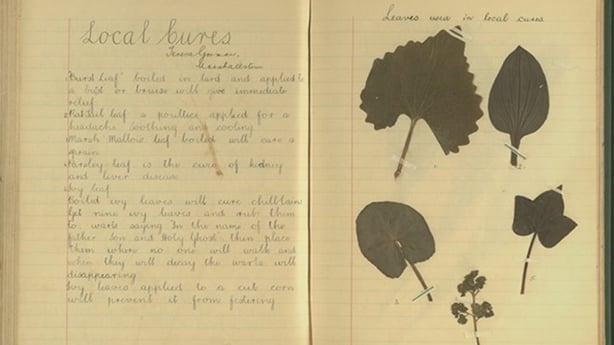 Local Cures
Marshalstown
"Burst Leaf" boiled in lard and applied to
a cut or bruise will give immediate
relief
leaf a poultice applied for a
headache soothing and cooling
Marsh Mallow leaf boiled will cure a
sprain
Parsley leaf is the cure of kidney
and liver disease
Ivy leaf
Boiled ivy leaves will cure chilblains
Get nine ivy leaves and rub them
to warts saying In the name of the
Father Son and Holy Ghost then place
them where no one will walk and
when they will decay the warts will
disappearing
Ivy leaves applied to a cut corn
will prevent it from festering
Leaves used in local cures
2.
3
5